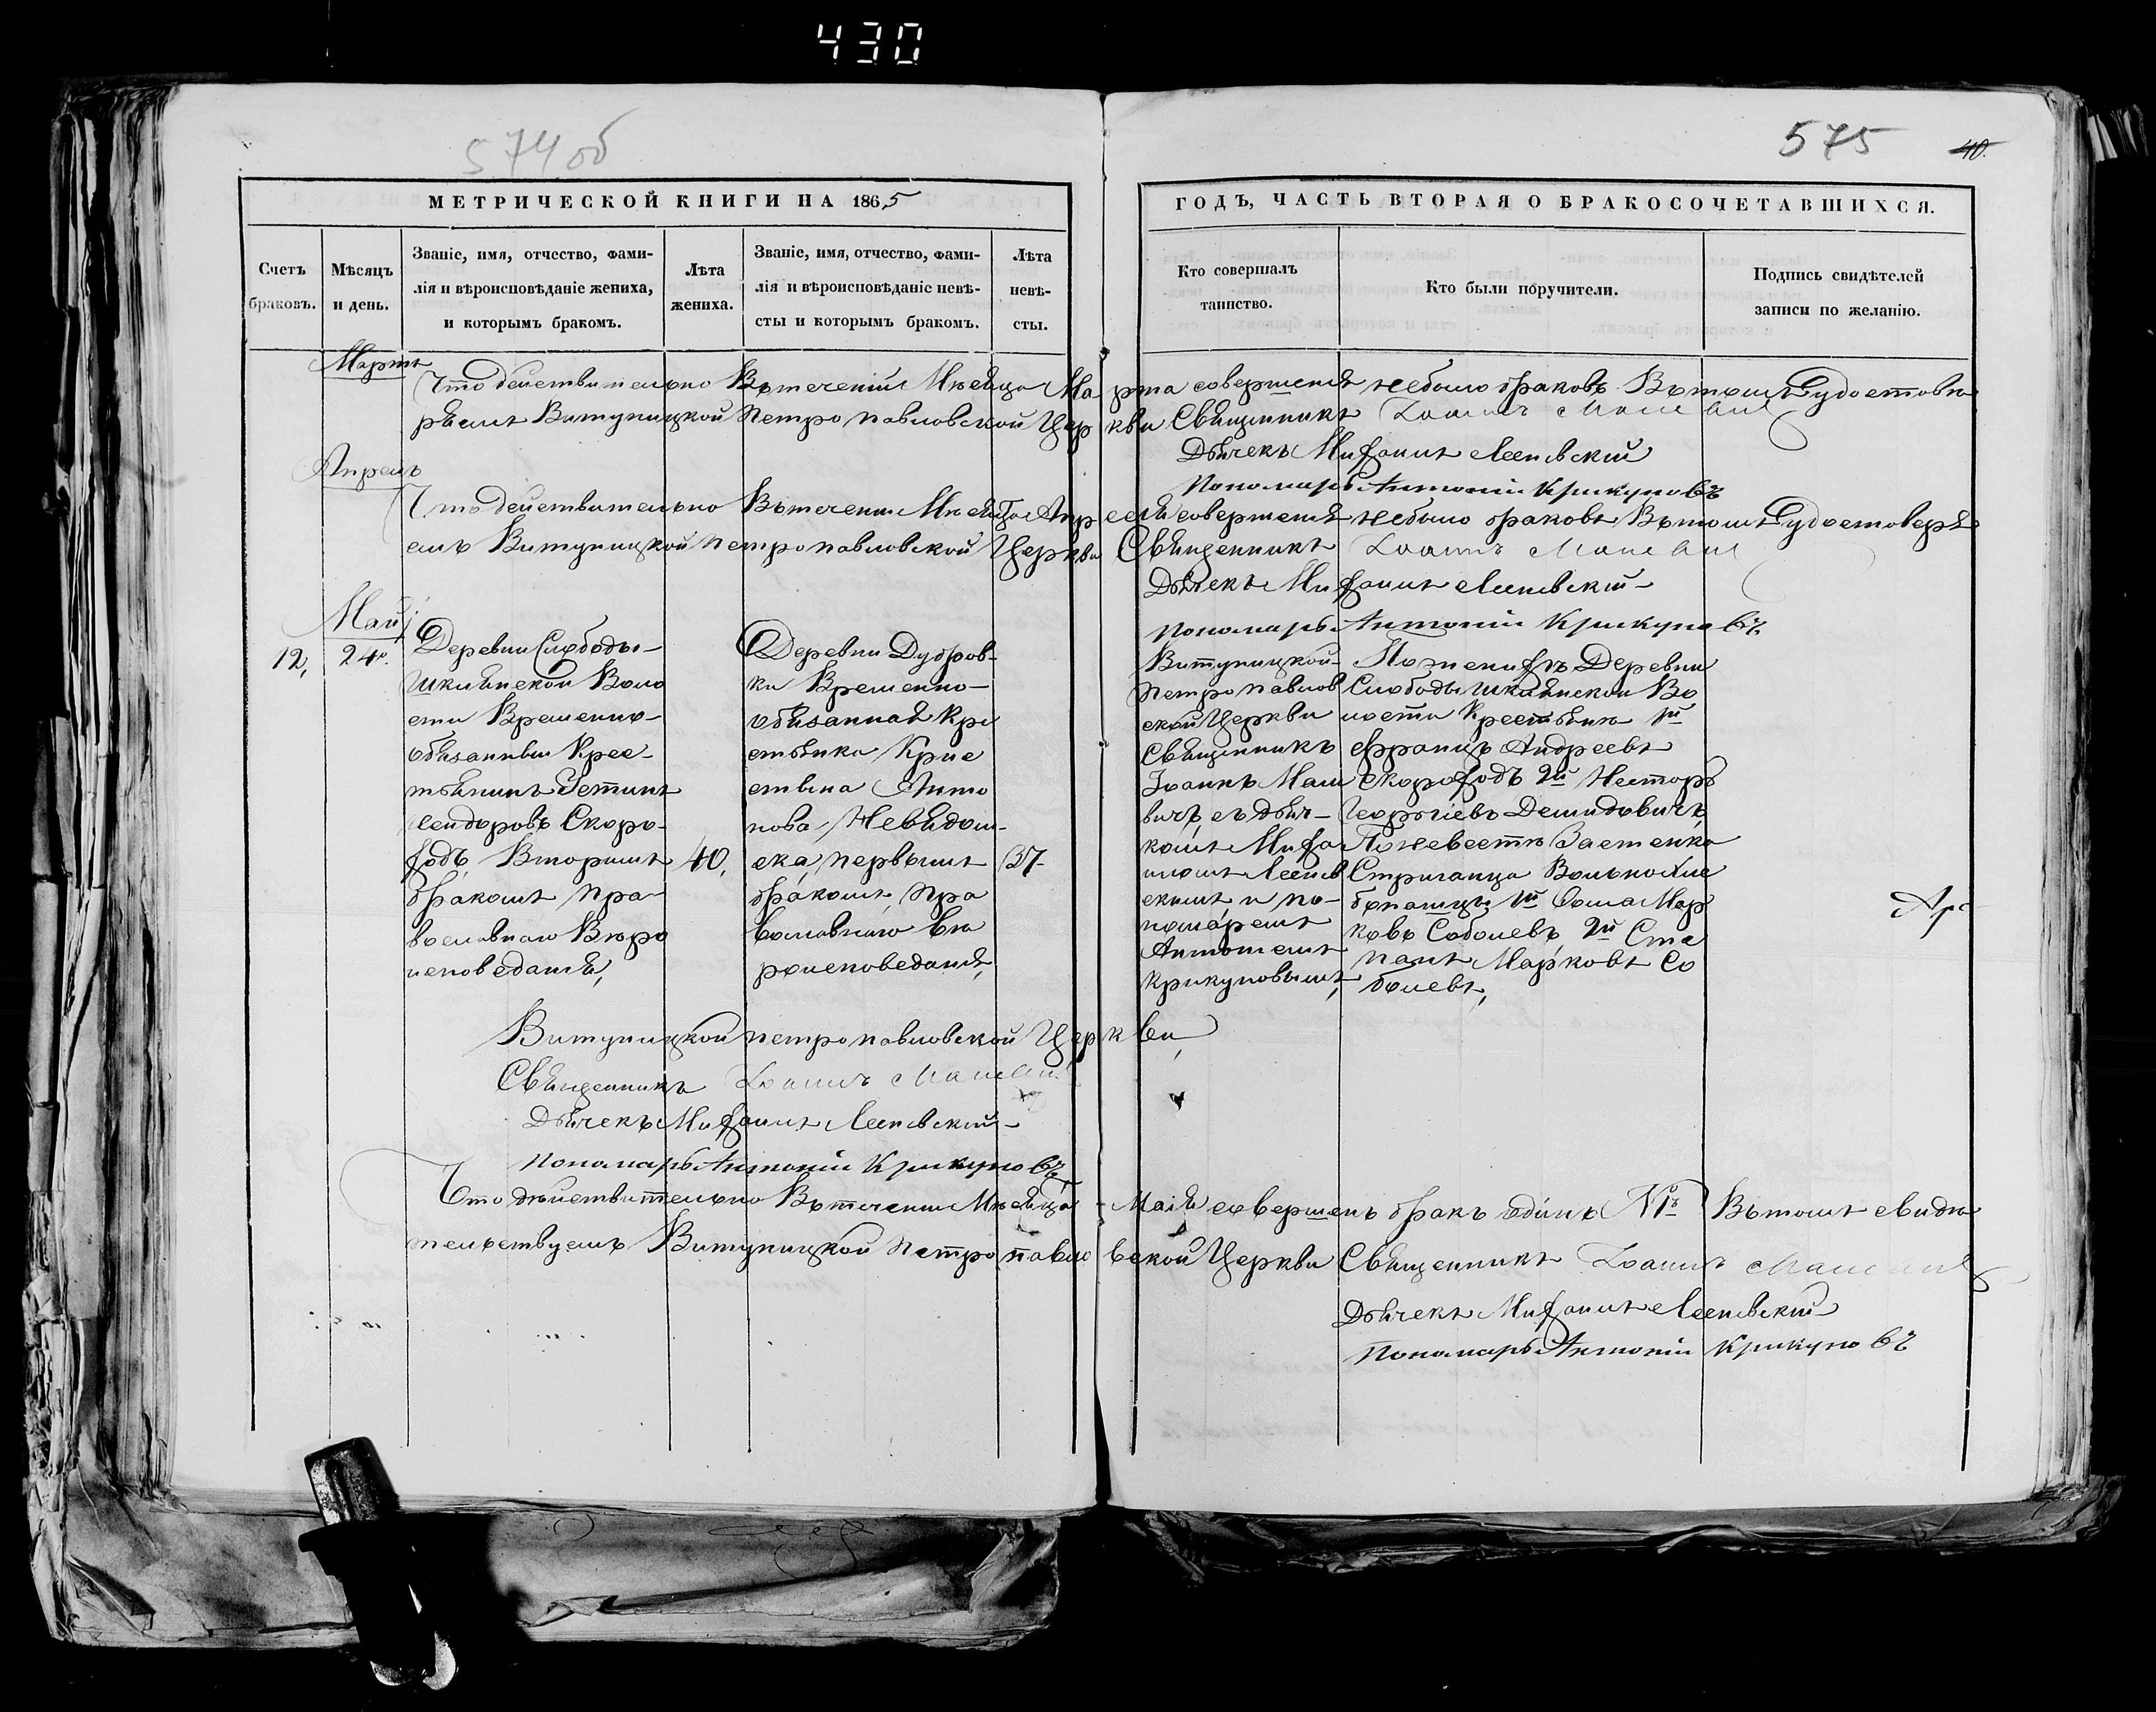 430
574об
МЕТРИЧЕСКОЙ КНИГИ НА 1865
Счетъ браковъ.
Мѣсяцъ и день.
Званіе, имя, отчество, фами-
лія и вѣроисповѣданіе жениха,
и которымъ бракомъ.
Лѣта жениха.
Званіе, имя, отчество, фами-
лія и вѣроисповѣданіе невѣ-
сты и которымъ бракомъ.
Лѣта невѣ-
сты.
575
40.
ГОДЪ, ЧАСТЬ ВТОРАЯ О БРАКОСОЧЕТАВШИХСЯ.
Кто совершалъ
таинство.
Кто были поручители.
Подпись свидѣтелей
записи по желанію.
Мартъ
Что действительно Въ течении Мѣсяца Марта совершения небыло браковъ Въ томъ удостовѣ
ряемъ Витуницкой Петропавловской Церкви Священникъ Іоаннъ
Дьячекъ
Пономарь Антоній Крикуновъ
Апрель
Что действительно Въ течении Мѣсяца Апреля совершения небыло браковъ Въ томъ удостоверя
емъ Витуницкой Петропавловской Церкви Священникъ Іоаннъ
Дьячекъ
Пономарь Антоній Крикуновъ
Май
12, 24го.
Деревни Слободы-
Шклянской Воло
сти Временно-
обязанный Крес-
тьянинъ Устинъ
Сидоровъ Скоро-
ходъ, Вторымъ
бракомъ Пра-
вославнаго Веро
исповедания,
40,
Деревни Дубров-
ки Временно-
обязанная Кре
стьянка Крис
тина Анто
нова
первымъ
бракомъ, Пра
вославнаго ве
роисповедания,
37
Витуницкой
Петропавлов
ской Церкви
Священникъ
Іоаннъ Маце
вичъ съ дьяч-
комъ
скимъ и по-
номаремъ
Антониемъ
Крикуновымъ,
По женихѣ Деревни
Слободы Шклянской Во
лости Крестьяне 1й
Францъ Андреевъ
Скороходъ 2й Несторъ
Георгіевъ Демидовичъ,
По невестѣ Застенка
Стриганца
1й Фома Мар
ковъ Соболевъ 2й Сте
панъ Марковъ Со
болевъ,
Витуницкой Петропавловской Церкви,
Священникъ Іоаннъ
Дьячекъ
Пономарь Антоній Крикуновъ
Что дѣйствительно Въ течении Мѣсяца Маія совершенъ бракъ одинъ №1й Въ томъ свидѣ
тельствуемъ Витуницкой Петропавловской Церкви Священникъ Іоаннъ
Дьячекъ
Пономарь Антоній Крикуновъ